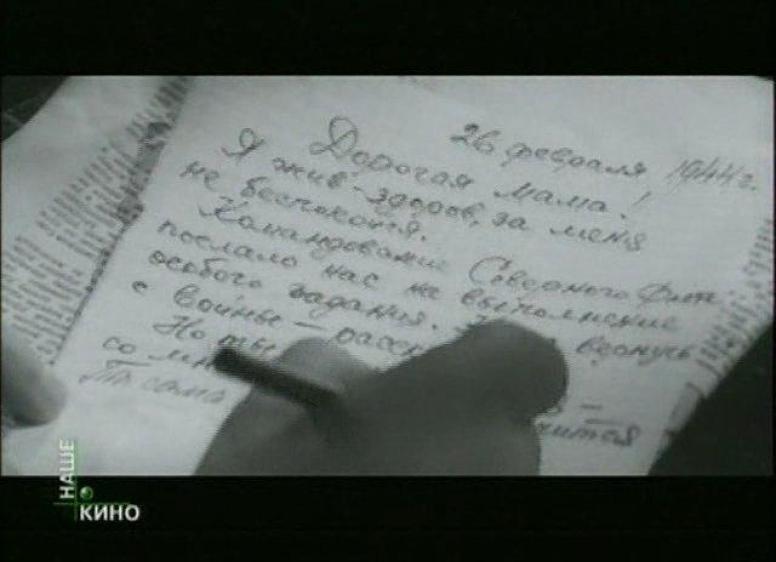 26 февраля 1944 г.
Дорогая мама!
Я жив-здоров, за меня
не беспокойся.
Командование Северного Флота
послало нас на выполнение
особого задания. вернусь
с войны — расск
Но ты
со мн
То сама чится
НАШЕ
КИНО